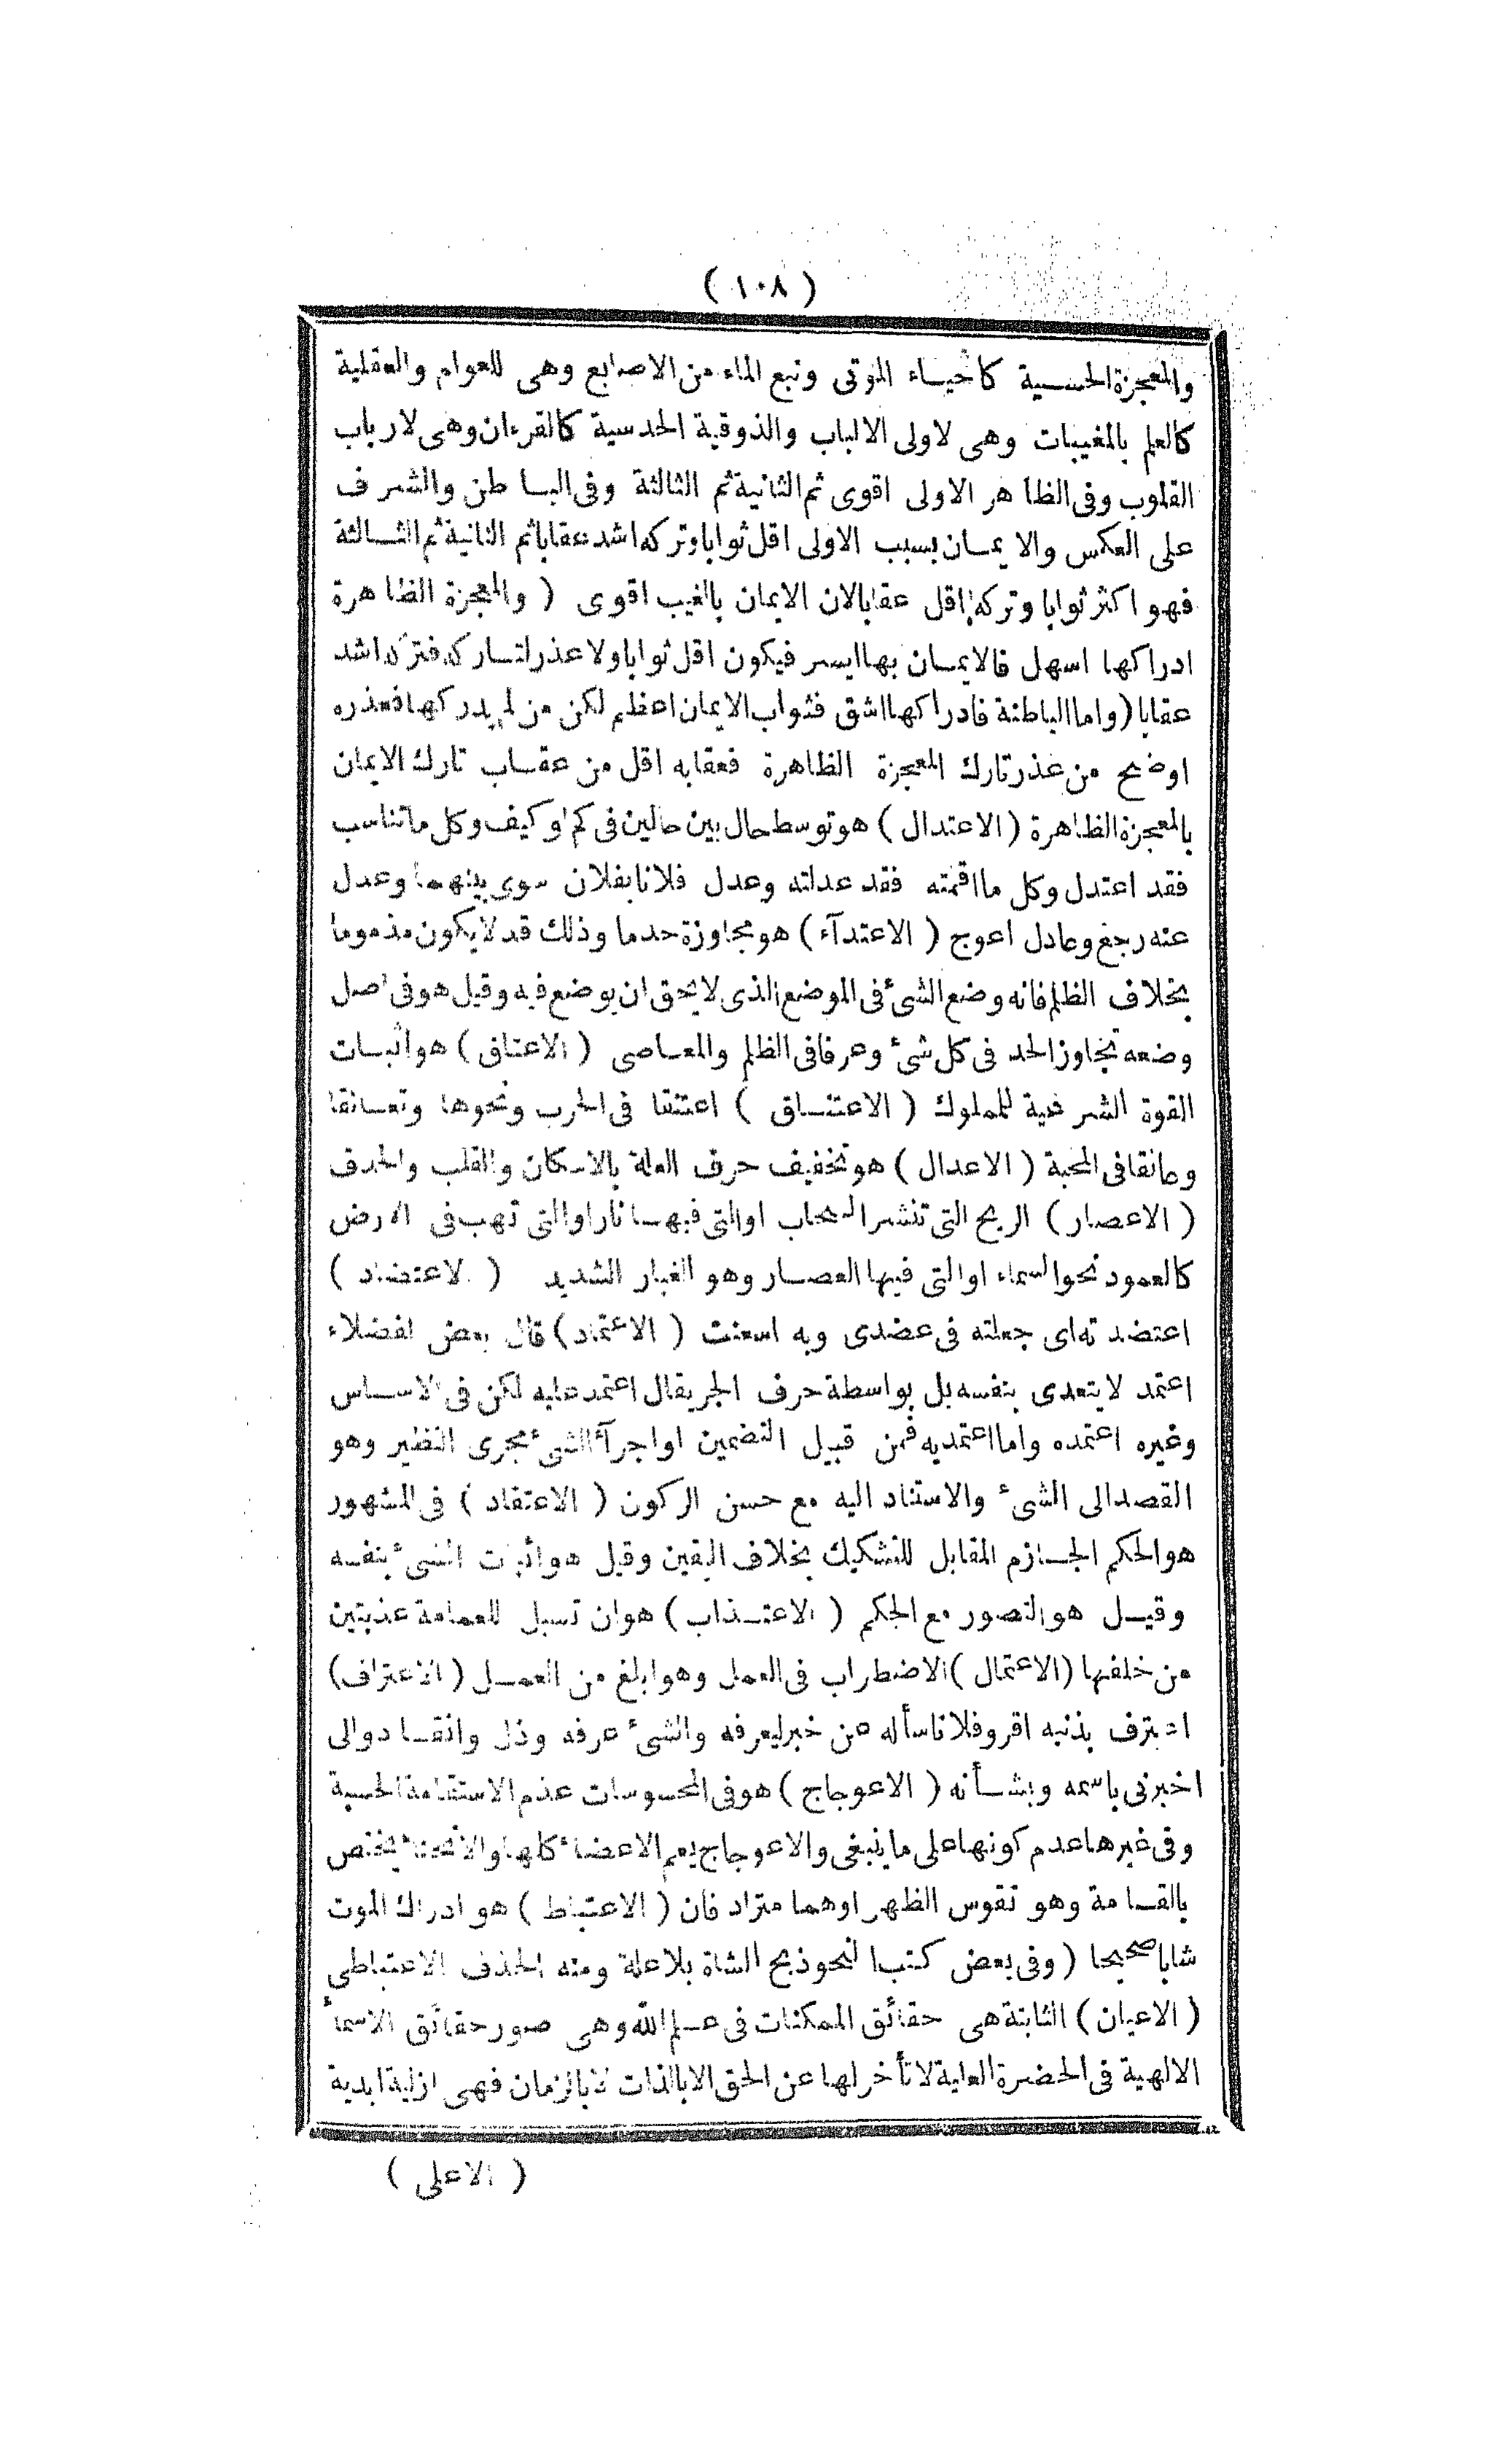 ( ١٠٨ )
والمعجزة الحسية كأحياء الموتى ونبع الماء من الاصابع وهى للعوام والعقلية
كالعلم بالمغيبات وهى لاولى الالباب والذوقية الحدسية كالقرءان وهى لارباب
القلوب وفى الظاهر الاولى اقوى ثم الثانية ثم الثالثة وفى الباطن والشرف
على العكس والايمان بسبب الاولى اقل ثوابا وتركه اشد عقابا ثم الثانية ثم الثالثة
فهو اكثر ثوابا وتركه اقل عقابا لان الايمان بالغيب اقوى ( والمعجزة الظاهرة
ادراكها اسهل فالايمان بها ايسر فيكون اقل ثوابا ولا عذر لتاركه فتركه اشد
عقابا (واما الباطنة فادراكها اشق فثواب الايمان اعظم لكن من لم يدركها فعذره
اوضح من عذر تارك المعجزة الظاهرة فعقابه اقل من عقاب تارك الايمان
بالمعجزة الظاهرة (الاعتدال) هو توسط حال بين حالين فى كم او كيف وكل ما تناسب
فقد اعتدل وكل ما اقمته فقد عدلته وعدل فلانا بفلان سوى بينهما وعدل
عنه رجع وعادل اعوج ( الاعتدآء ) هو مجاوزة حدما وذلك قد لايكون مذموما
بخلاف الظلم فانه وضع الشئ فى الموضع الذى لايحق ان يوضع فيه وقيل هو فى اصل
وضعه تجاوز الحد فى كل شئ وعرفا فى الظلم والمعاصى (الاعتاق) هو اثبات
القوة الشرعية للمملوك ( الاعتناق ) اعتنقا فى الحرب ونحوها وتعانقا
وعانقا فى المحبة (الاعدال) هو تخفيف حرف العلة بالاسكان والقلب والحذف
(الاعصار) الريح التى تنشر السحاب او التى فيها نار او التى تهب فى الارض
كالعمود نحو السماء او التى فيها العصار وهو الغبار الشديد ( الاعتضاد )
اعتضد ته اى جعلته فى عضدى وبه استعنت ( الاعتماد ) قال بعض الفضلاء
اعتمد لا يتعدى بنفسه بل بواسطة حرف الجر يقال اعتمد عليه لكن فى الاساس
وغيره اعتمده واما اعتمد به فمن قبيل التضمين او اجرآء الشئ مجرى النظير وهو
القصد الى الشئ والاستناد اليه مع حسن الركون ( الاعتقاد ) فى المشهور
هو الحكم الجازم المقابل للتشكيك بخلاف اليقين وقيل هو اثبات الشئ بنفسه
وقيل هو التصور مع الحكم ( الاعتذاب ) هو ان تسبل للعمامة عذبتين
من خلفها (الاعتمال) الاضطراب فى العمل وهو ابلغ من العمل (الاعتراف)
اعترف بذنبه اقر وفلانا سأله عن خبر ليعرفه والشئ عرفه وذل وانقاد والى
اخبرنى باسمه وبشأنه ( الاعوجاج ) هو فى المحسوسات عدم الاستقامة الحسية
وفى غيرها عدم كونها على ما ينبغى والاعوجاج يعم الاعضاء كلها والانحناء يختص
بالقامة وهو تقوس الظهر او هما مترادفان ( الاعتباط ) هو ادراك الموت
شابا صحيحا ( وفى بعض كتبنا نحو ذبح الشاة بلا علة ومنه الحذف الاعتباطى
(الاعيان) الثابتة هى حقائق الممكنات فى علم الله وهى صور حقائق الاسماء
الالهية فى الحضرة العلية لا تأخر لها عن الحق الا بالذات لا بالزمان فهى ازلية ابدية
( الاعلى )